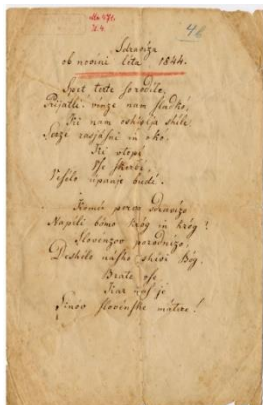 46
Sdravize
ob novini léta 1844.
Spet terte sorodile,
Prijatli vinze nam sladkó,
Ki nam oshivlja shile
Serze rasjásni in oko.
Ki vtopi
Vse skerbi,
Veselo upanje budi.
Komú perva sdravizo
Napili bómo króg in króg?
Slovenzov porodnizo,
Deshêlo násho shivi Bog.
Brate vse
Kar nas je
Sinóv slovénske mátere!